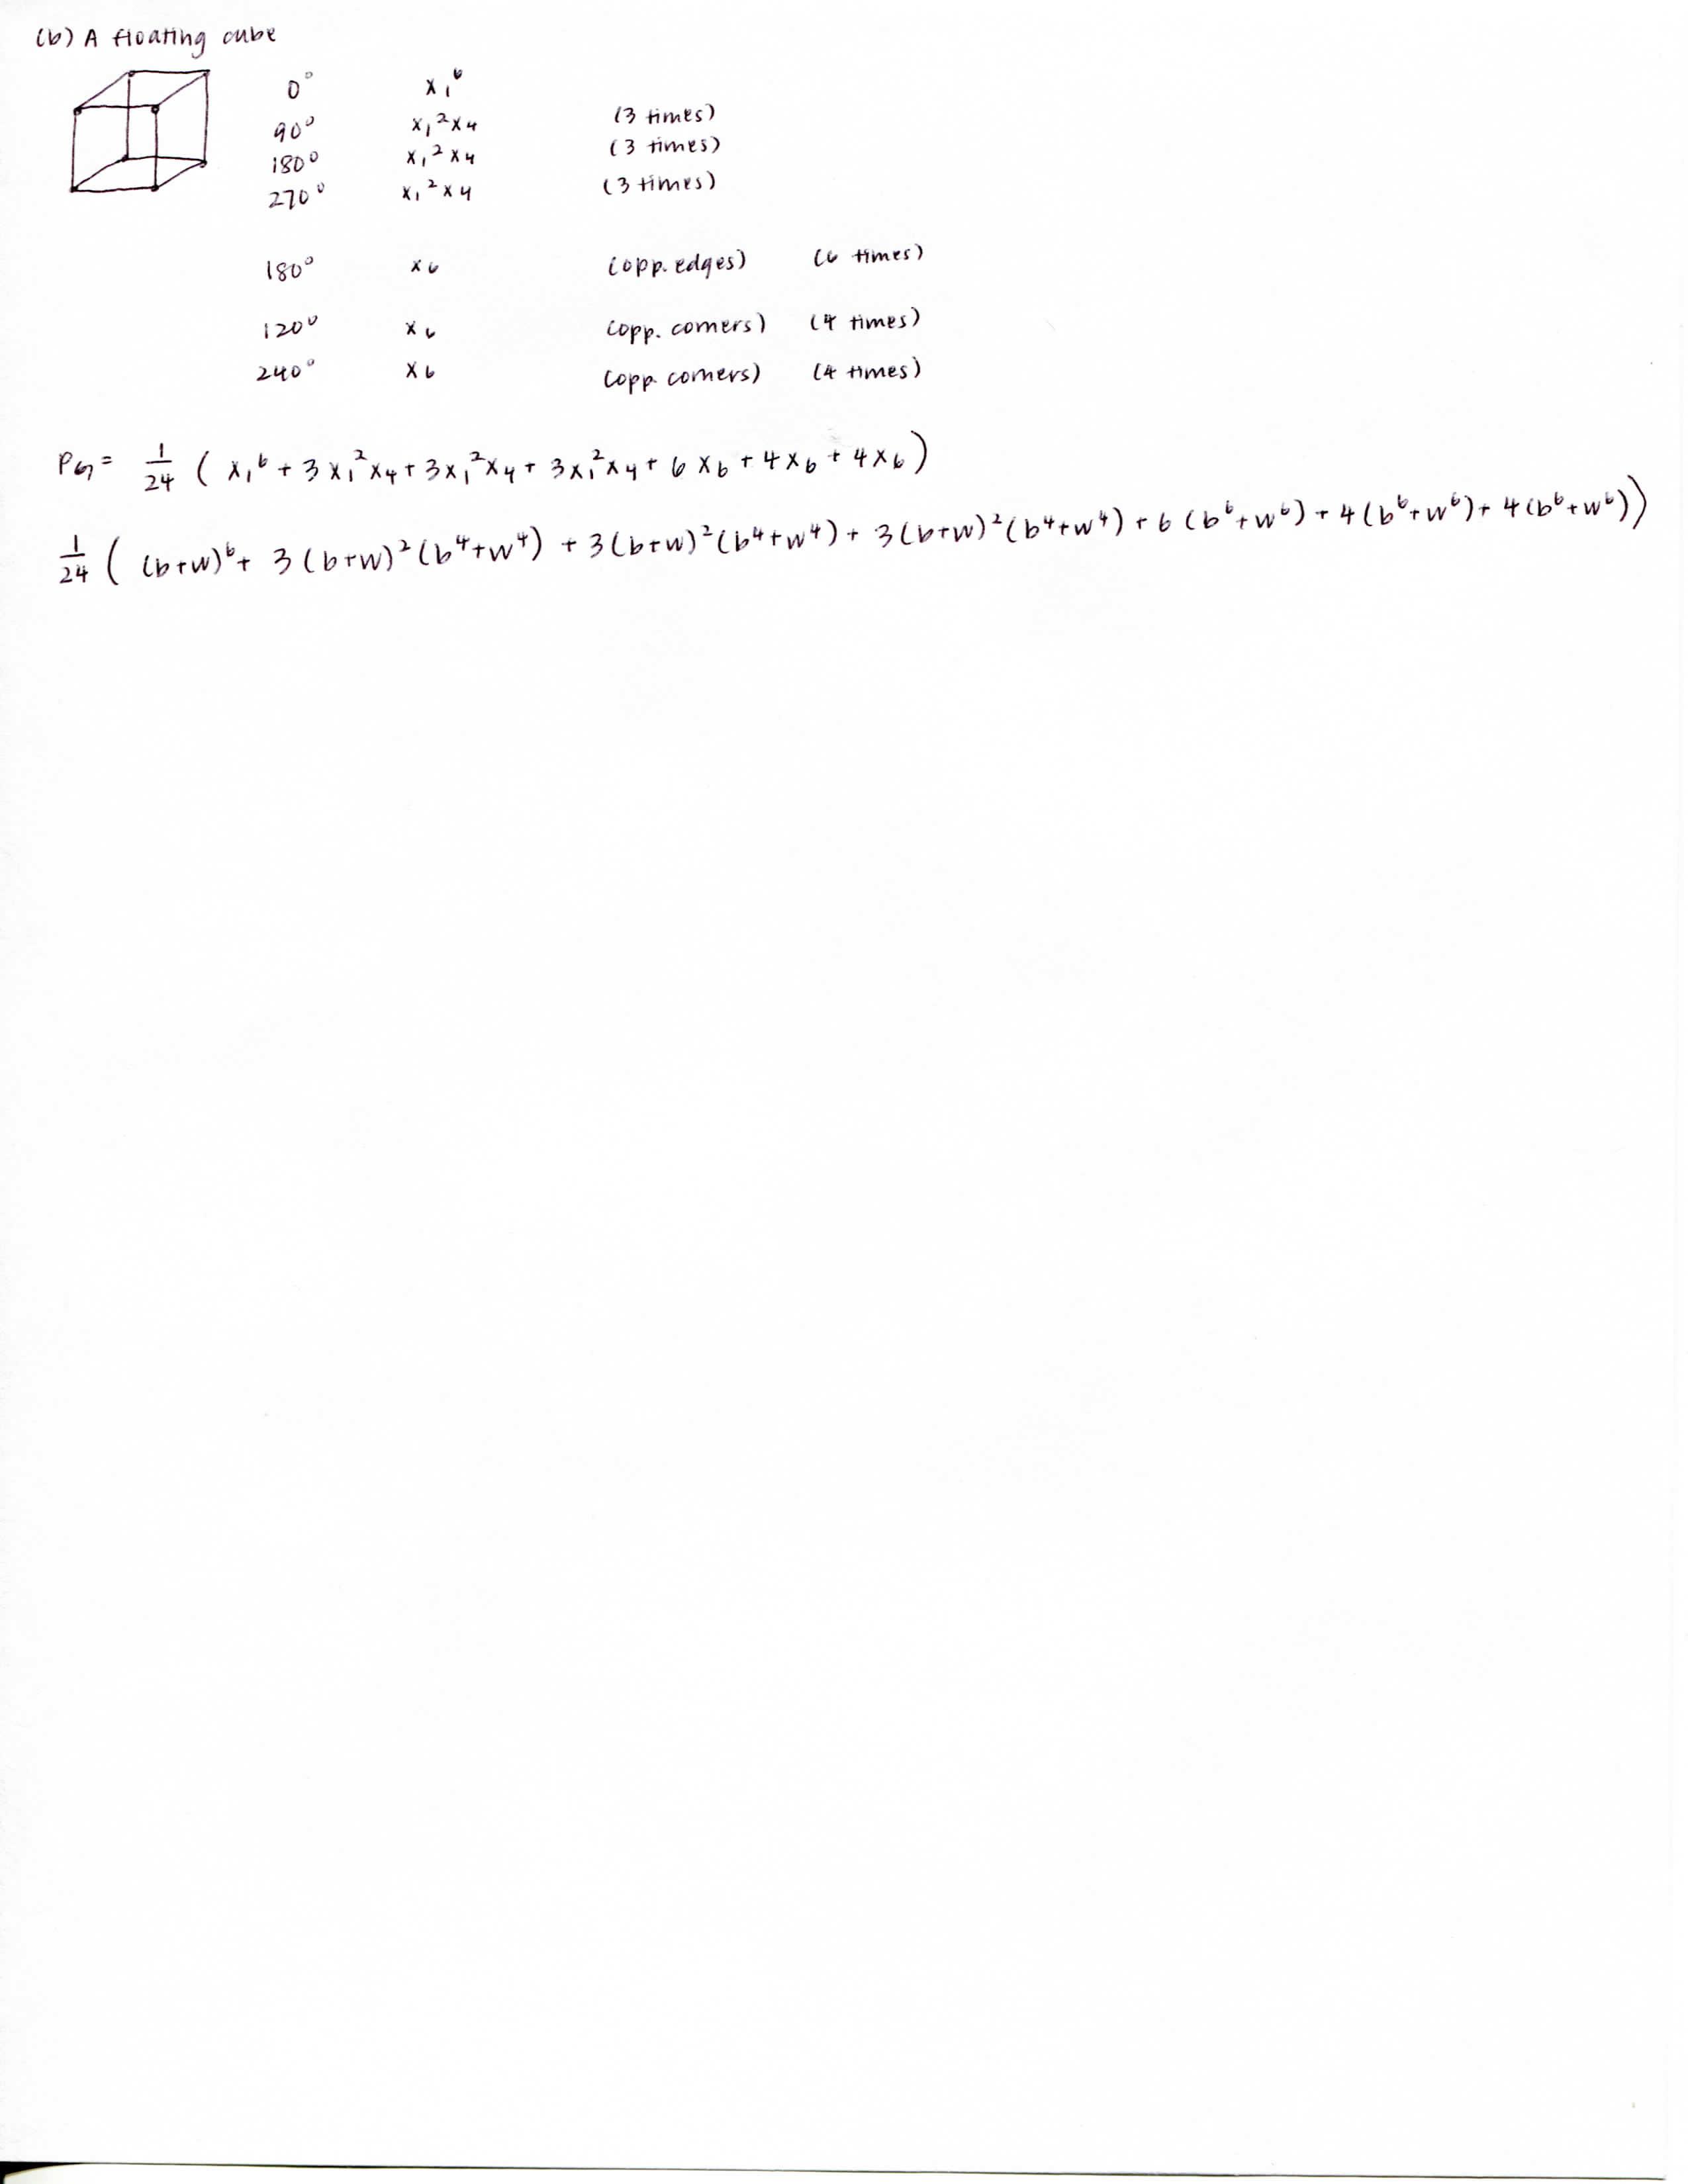 (b) A floating cube
0° x₁⁶
90° x₁²x₄ (3 times)
180° x₁²x₄ (3 times)
270° x₁²x₄ (3 times)
180° x₆ (opp. edges) (6 times)
120° x₆ (opp. corners) (4 times)
240° x₆ (opp. corners) (4 times)
P_G = 1/24 ( x₁⁶ + 3x₁²x₄ + 3x₁²x₄ + 3x₁²x₄ + 6x₆ + 4x₆ + 4x₆ )
1/24 ( (b+w)⁶ + 3(b+w)²(b⁴+w⁴) + 3(b+w)²(b⁴+w⁴) + 3(b+w)²(b⁴+w⁴) + 6(b⁶+w⁶) + 4(b⁶+w⁶) + 4(b⁶+w⁶) )